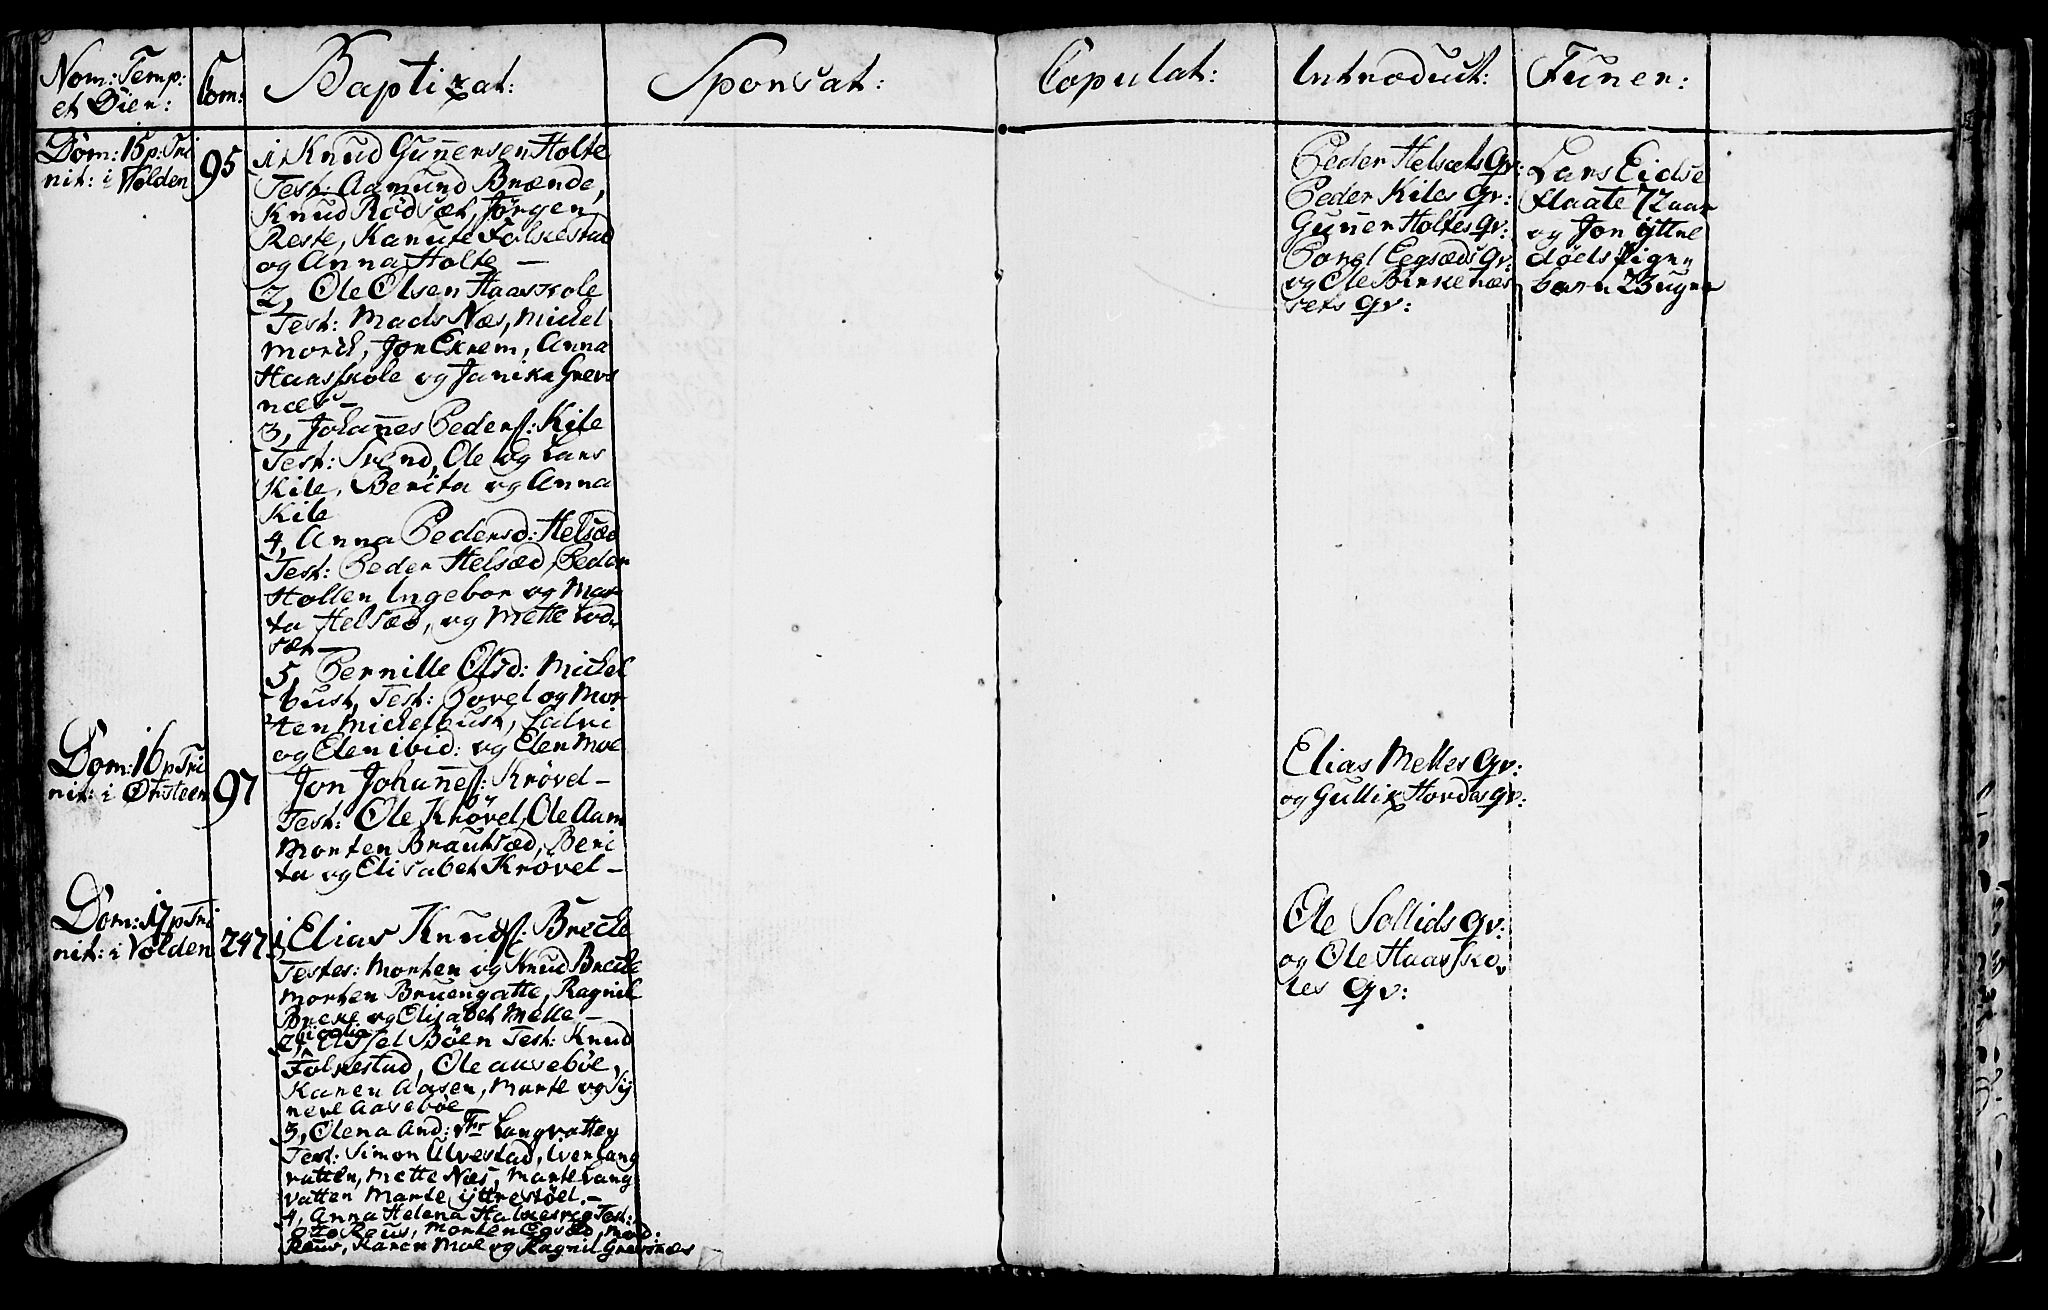 Nom: Temp:
et Dier:
Com:
Baptizat:
Sponsat:
Copulat:
Introduct:
Funer:
Dom: 15 p: Tri
nit: i Volden
95
1, Knud Gunnersen Holte
Test: Aamund Brænde,
Knud Rødsæt, Jørgen
Reste, Kanute Folkestad
og Anna Holte —
2, Ole Olsen Haaskole
Test: Mads Næs, Michel
Morch, Jon Exrem, Anna
Haasskole og Janika Grevs
næs —
3, Johannes Peders: Kile
Test: Svend, Ole og Lars
Kile, Berita og Anna
Kile
4, Anna Pedersd: Helsæd
Test: Peder Helsæd, Peder
Hollen Ingebor og Mar
ta Helsæd, og Mette Lod
sæt —
5, Pernille Olsd: Michel
bust, Test: Povel og Mor
ten Michelbust,
og Elen ibid: og Elen Moe
Peder Helsæts qv:
Peder Kiles qv:
Gunner Holtes qv:
Povel Eegsæds qv:
og Ole Birkenæs
sets qv:
Lars Eidse
flaate 72 aar
og Jon ÿttre
døds pige
barn 23 uger
Dom: 16 p Tri
nit: i Ørsteen
97
Jon Johanness: Krøvel —
Test: Ole Krøvel, Ole Aam
Morten Brautsæd, Beri
ta og Elisabet Krøvel —
Elias Melles qv:
og Gullik Hovdes qv:
Dom: 17 p Tri
nit: i Volden
247
1, Elias Knuds: Breche
Testes: Morten og Knud Breche
Morten Bruengatte, Ragnil
Breke og Elisabet Melle —
2, Assel Bøen Test: Knud
Folkestad, Ole aasebøe,
Karen Aasen, Marte og Sÿ
nere Aasebøe
3, Olena And: Langvatten
Test: Simon Ulvestad, Iver Lang
vatten, Mette Næs, Marte Lang
vatten Marte ÿttrestøel. —
4, Anna Helena Halkesvig Test:
Otto Reus, Morten Egsæd, Mad:
Reus, Karen Moe og Ragnil Grevsnæs
Ole Sollids qv:
og Ole Haassko
les qv: